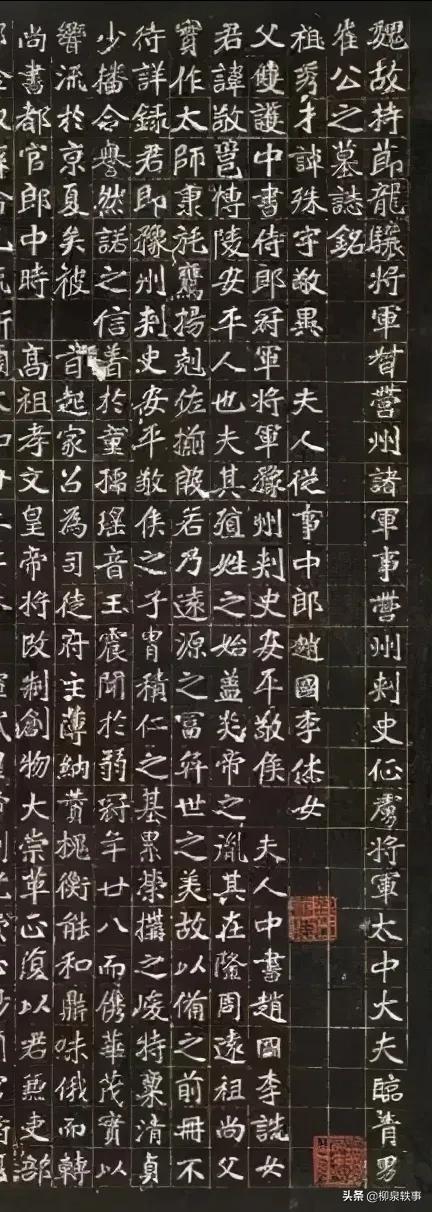 魏故持節龍驤將軍督營州諸軍事營州刺史征虜將軍太中大夫臨青男
崔公之墓誌銘
祖秀才諱殊字敬異 夫人從事中郎趙國李休女
父雙護中書侍郎冠軍將軍豫州刺史安平敬侯 夫人中書趙國李詵女
君諱敬邕博陵安平人也夫其殖姓之始蓋炎帝之胤其在隆周遠祖尚父
實作太師秉旄鷹揚剋佐揃殷若乃遠源之富弈世之美故以備之前冊不
待詳錄君即豫州刺史安平敬侯之子胄積仁之基累榮構之峻特稟清貞
少播令譽然諾之信著於童孺瑤音玉震聞於弱冠年廿八而儁華茂實以
響流於京夏矣被 旨起家召為司徒府主薄納贊槐衡能和鼎味俄而轉
尚書都官郎中時 高祖孝文皇帝將改制創物大崇革正復以君兼吏部
头条 @柳泉轶事